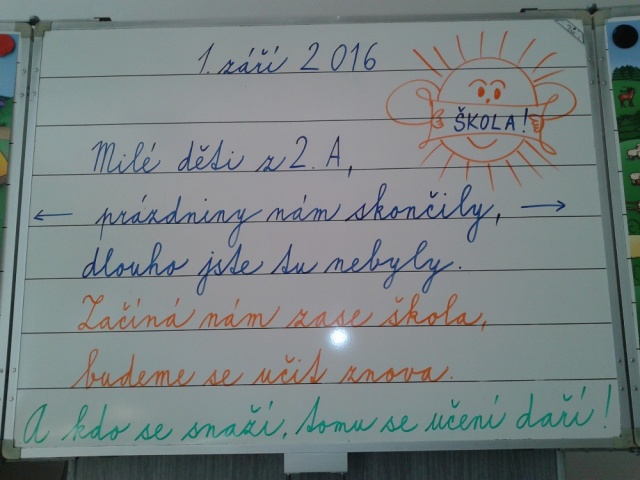 1. září 2016
ŠKOLA!
Milé děti z 2. A,
← prázdniny nám skončily, →
dlouho jste tu nebyly.
Začíná nám zase škola,
budeme se učit znova.
A kdo se snaží, tomu se učení daří!